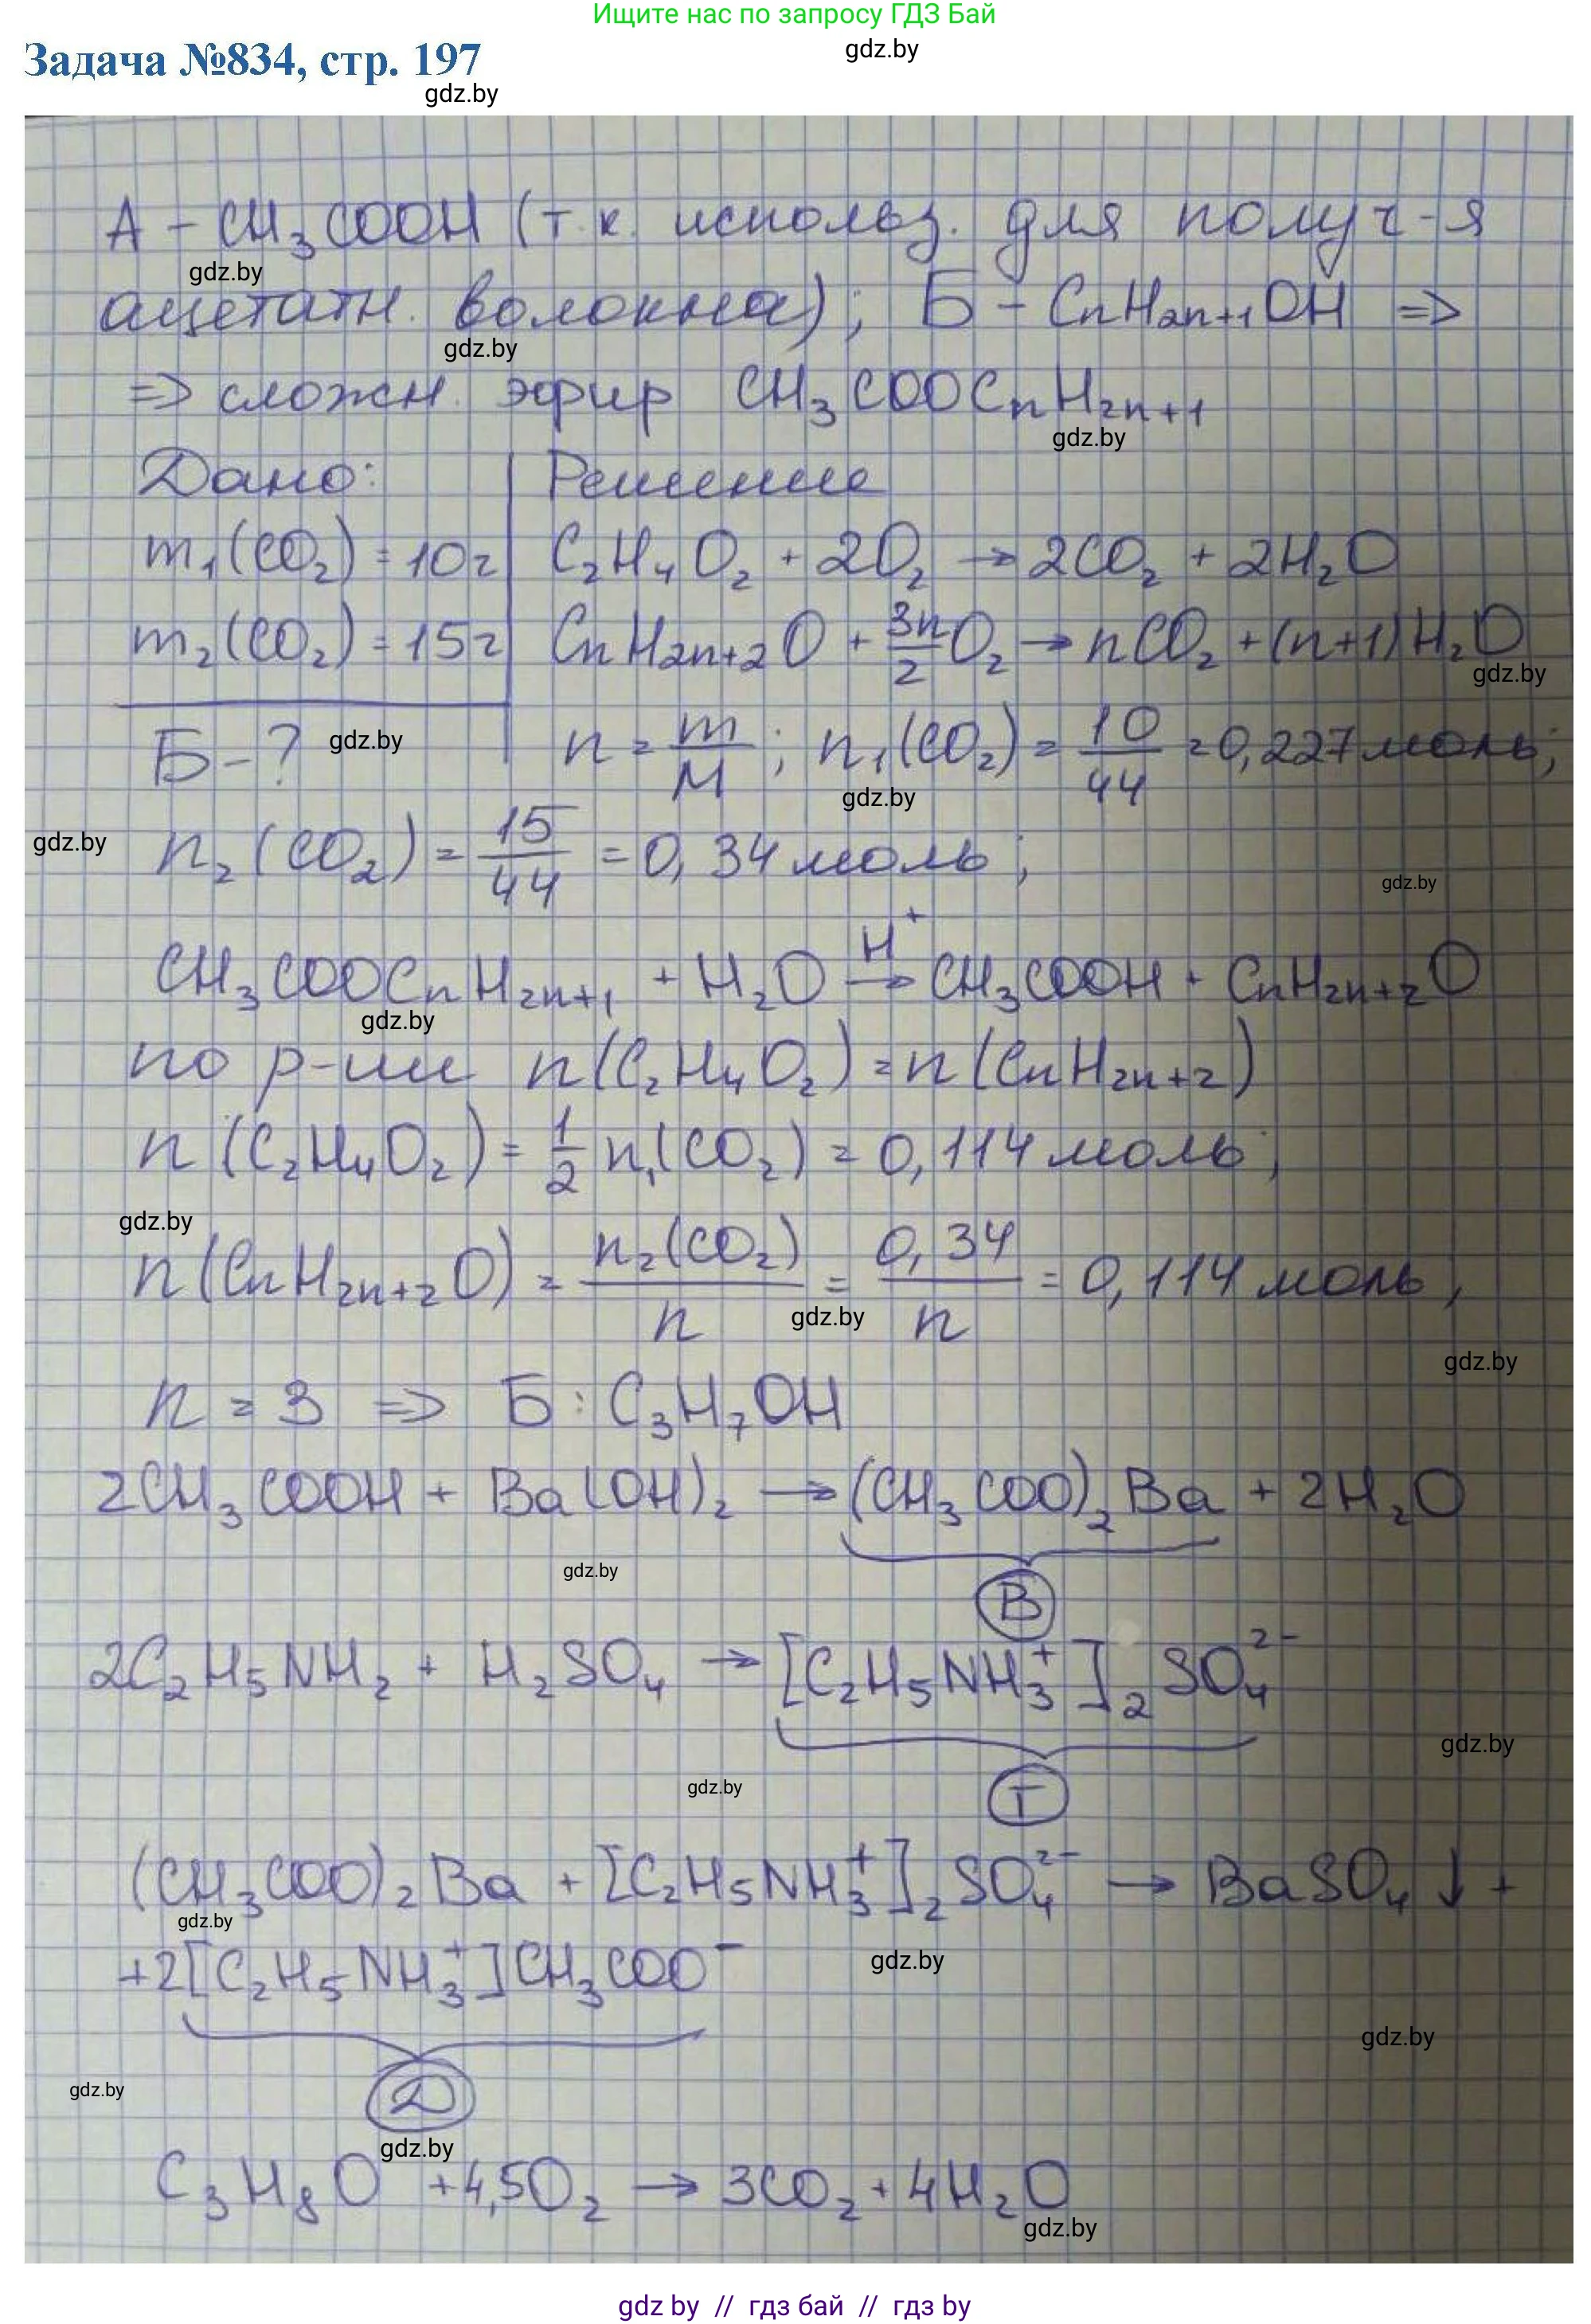 Ищите нас по запросу ГДЗ Бай
Задача №834, стр. 197
gdz.by
gdz.by
А – CH₃COOH (т.к. использ. для получ-я
gdz.by
ацетатн. волокна); Б – CnH₂n₊₁OH ⇒
gdz.by
⇒ сложн. эфир CH₃COOCnH₂n₊₁
gdz.by
Дано: Решение
m₁(CO₂) = 10г C₂H₄O₂ + 2O₂ → 2CO₂ + 2H₂O
m₂(CO₂) = 15г CnH₂n₊₂O + 3n/2 O₂ → nCO₂ + (n+1)H₂O
gdz.by
Б – ? gdz.by n = m/M; n₁(CO₂) = 10/44 = 0,227 моль;
gdz.by
gdz.by n₂(CO₂) = 15/44 = 0,34 моль;
gdz.by
CH₃COOCnH₂n₊₁ + H₂O →(H⁺) CH₃COOH + CnH₂n₊₂O
gdz.by
по р-ции n(C₂H₄O₂) = n(CnH₂n₊₂)
n(C₂H₄O₂) = 1/2 n₁(CO₂) = 0,114 моль;
gdz.by
n(CnH₂n₊₂O) = n₂(CO₂)/n = 0,34/n = 0,114 моль,
gdz.by
gdz.by
n = 3 ⇒ Б: C₃H₇OH
2CH₃COOH + Ba(OH)₂ → (CH₃COO)₂Ba + 2H₂O
gdz.by
В
2C₂H₅NH₂ + H₂SO₄ → [C₂H₅NH₃⁺]₂SO₄²⁻
gdz.by
gdz.by
Г
(CH₃COO)₂Ba + [C₂H₅NH₃⁺]₂SO₄²⁻ → BaSO₄↓ +
gdz.by
+2[C₂H₅NH₃⁺]CH₃COO⁻
gdz.by
gdz.by
gdz.by
Д
gdz.by
C₃H₈O +4,5O₂ → 3CO₂ + 4H₂O
gdz.by
gdz by // гдз бай // гдз by